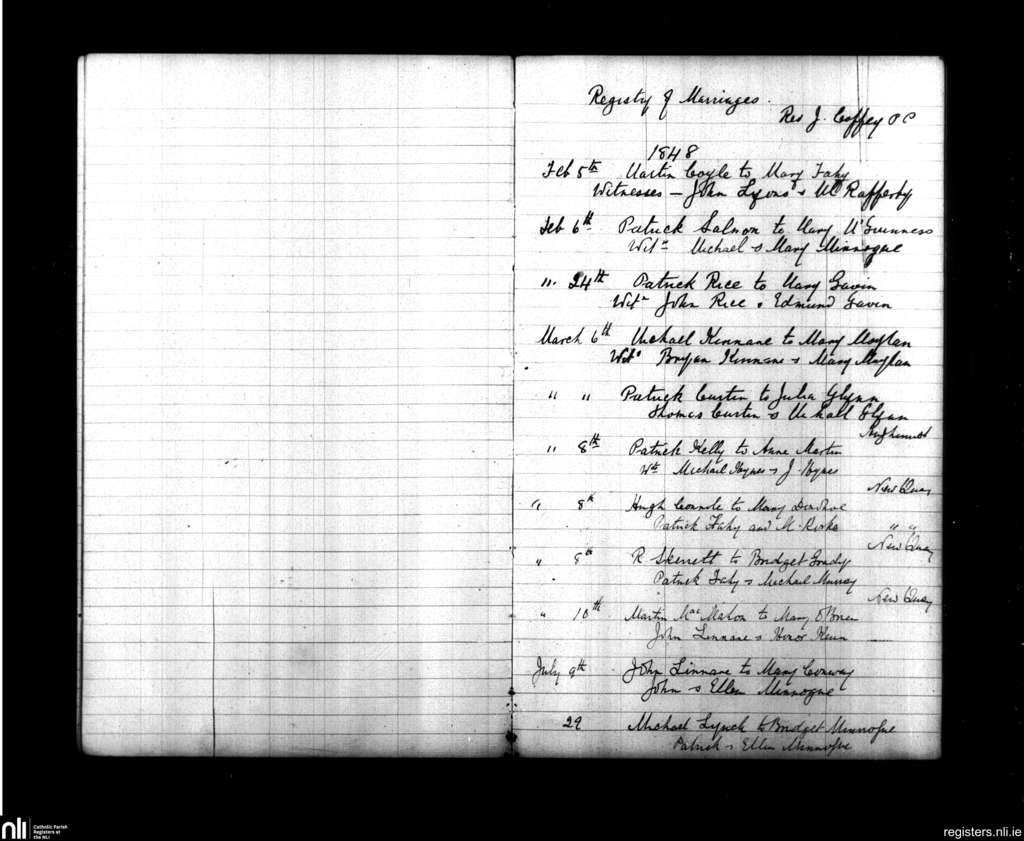 Registry of Marriages.
Rev J. Coffey P P
1848
Feb 5th Martin Coyle to Mary Fahy
Witnesses — John Lyons & Rafferty
Feb 6th Patrick Salmon to Mary McGuinness
Witn Michael & Mary Minnogue
" 24th Patrick Rice to Mary Gavin
Witn John Rice & Edmund Gavin
March 6th Michael Kinnane to Mary Moylan
Wits Bryan Kinnane & Mary Moylan
" " Patrick Curtin to Julia Glynn
Thomas Curtin & Michall Glynn
" 8th Patrick Kelly to Anne Martin
Wit Michael Hynes & J. Hynes
New Quay
" 8th Hugh to Mary
Patrick Fahy and M. " "
New Quay
" 9th R Skerrett to Bridget Grady
Patrick Fahy & Michael Murray
New Quay
" 10th Martin Mac Mahon to Mary O'Brien
John Linnane & Honor
July 9th John Linnane to Mary Conway
John & Ellen Minnogue
29 Michael Lynch to Bridget Minnogue
Patrick & Ellen Minnogue
nli Catholic Parish
Registers at
the NLI
registers.nli.ie